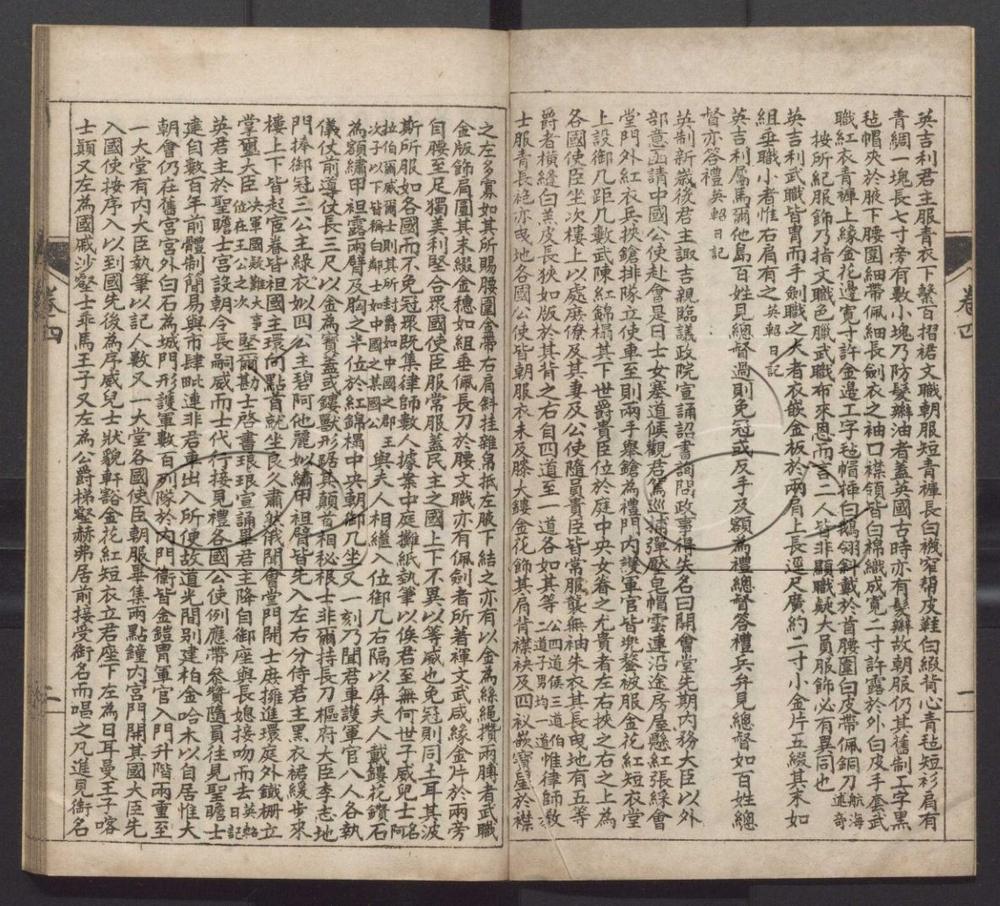 英吉利君主服青衣下繫百摺裙文職朝服短青褲長白襪窄幫皮鞋白緞背心青氊短衫肩有
青綢一塊長七寸旁有數小塊乃防髮辮油者蓋英國古時亦有髮辮故朝服仍其舊制工字黑
氊帽夾於腋下腰圍細帶佩細長劍衣之袖口襟領皆白棉織成寬二寸許露於外白皮手套武
職紅衣青褲上緣金花邊寬寸許金邊工字氊帽揷白鵝翎斜戴於首腰圍白皮帶佩銅刀航海述奇
按所紀服飾乃指文職色臘武職布來恩而言二人皆非顯職缺大員服飾必有異同也
英吉利武職皆冑而手劍職之大者衣嵌金板於兩肩上長逕尺廣約二寸小金片五綴其末如
組垂職小者惟右肩有之英軺日記
英吉利屬馬爾他島百姓見總督過則免冠或反手及額為禮總督答禮兵弁見總督如百姓總
督亦答禮英軺日記
英制新歲後君主諏吉親臨議政院宣誦詔書詢問政事得失名曰開會堂先期內務大臣以外
部意函請中國公使赴會是日士女塞道候觀君駕巡捕彈壓皂帽雲連沿途房屋懸紅張綵會
堂門外紅衣兵挾鎗排隊立使車至則兩手舉鎗為禮門內護軍官皆兜鍪被服金花紅短衣堂
上設御几距几數武陳紅錦榻其下世爵貴臣位於庭中央女眷之尤貴者左右挾之右之上為
各國使臣坐次樓上以處庶僚及其妻及公使隨員貴臣皆常服襲無袖朱衣其長曳地有五等
爵者橫縫白羔皮長狹如版於其背之右自四道至一道各如其等公四道侯三道伯二道子男均一道惟律師教
士服青長袍亦曳地各國公使皆朝服衣未及膝大縷金花飾其肩背襟袂及四衸嵌寶星於襟
之左多寡如其所賜腰圍金帶右肩斜挂雜帛抵左腋下結之亦有以金為絲繩攢兩膊者武職
金版飾肩圓其末綴金穗如組垂佩長刀於腰文職亦有佩劍者所着褌文武咸緣金片於兩旁
自腰至足獨美利堅合眾國使臣服常服蓋民主之國上下不異以等威也免冠則同土耳其波
斯所服如各國而不免冠眾既集律師數人據案中庭攤紙執筆以俟君至無何世子威兒士阿名
拉伯爾威爾士則其所封爵如中國之郡王次子以下皆稱白鄰士如中國之某國公與夫人相繼入位御几右隔以屏夫人戴鏤花鑽石
為額繡甲袒露兩臂及胸之半位於紅錦榻中央朝御几坐又一刻乃聞君車護軍官八人各執
儀仗前導仗長三尺以金為寶蓋或鏤獸形踞其顛首相秘根士非爾持長刀樞府大臣李志地
門捧御冠三公主綠衣如四公主碧阿他麗如繡甲袒臂皆先入左右分侍君主黑衣裙緩步來
樓上下皆起宮眷皆相國主環向點首就坐良久肅然俄聞會堂門開士庶擁進環庭外鐵柵立
掌璽大臣決軍國疑難大事位在王公之次堅爾勘士啓書琅琅宣誦畢君主降自御座與長媳接吻而去英軺日記
英君主於聖瞻士宮設朝今長嗣威而士代行接見禮各國公使例應帶參贊隨員往見聖瞻士
建自數百年前體制簡易與巿肆毗連非君車出入所使故道光間别建柏金哈木以自居惟大
朝會仍在舊宮宮外白石為城門形護軍數百列隊於內門衞皆金鎧冑軍官入門升階兩重至
一大堂有內大臣執筆以記人數又一大堂各國使臣朝服畢集兩點鐘內宮門開其國大臣先
入國使按序入以到國先後為序威兒士狀貌軒豁金花紅短衣立君座下左為日耳曼王子喀
士顛又左為國戚沙壑士乖馬王子又左為公爵梯壑赫弗居前接受銜名而唱之凡進見銜名
卷四
一
卷四
二